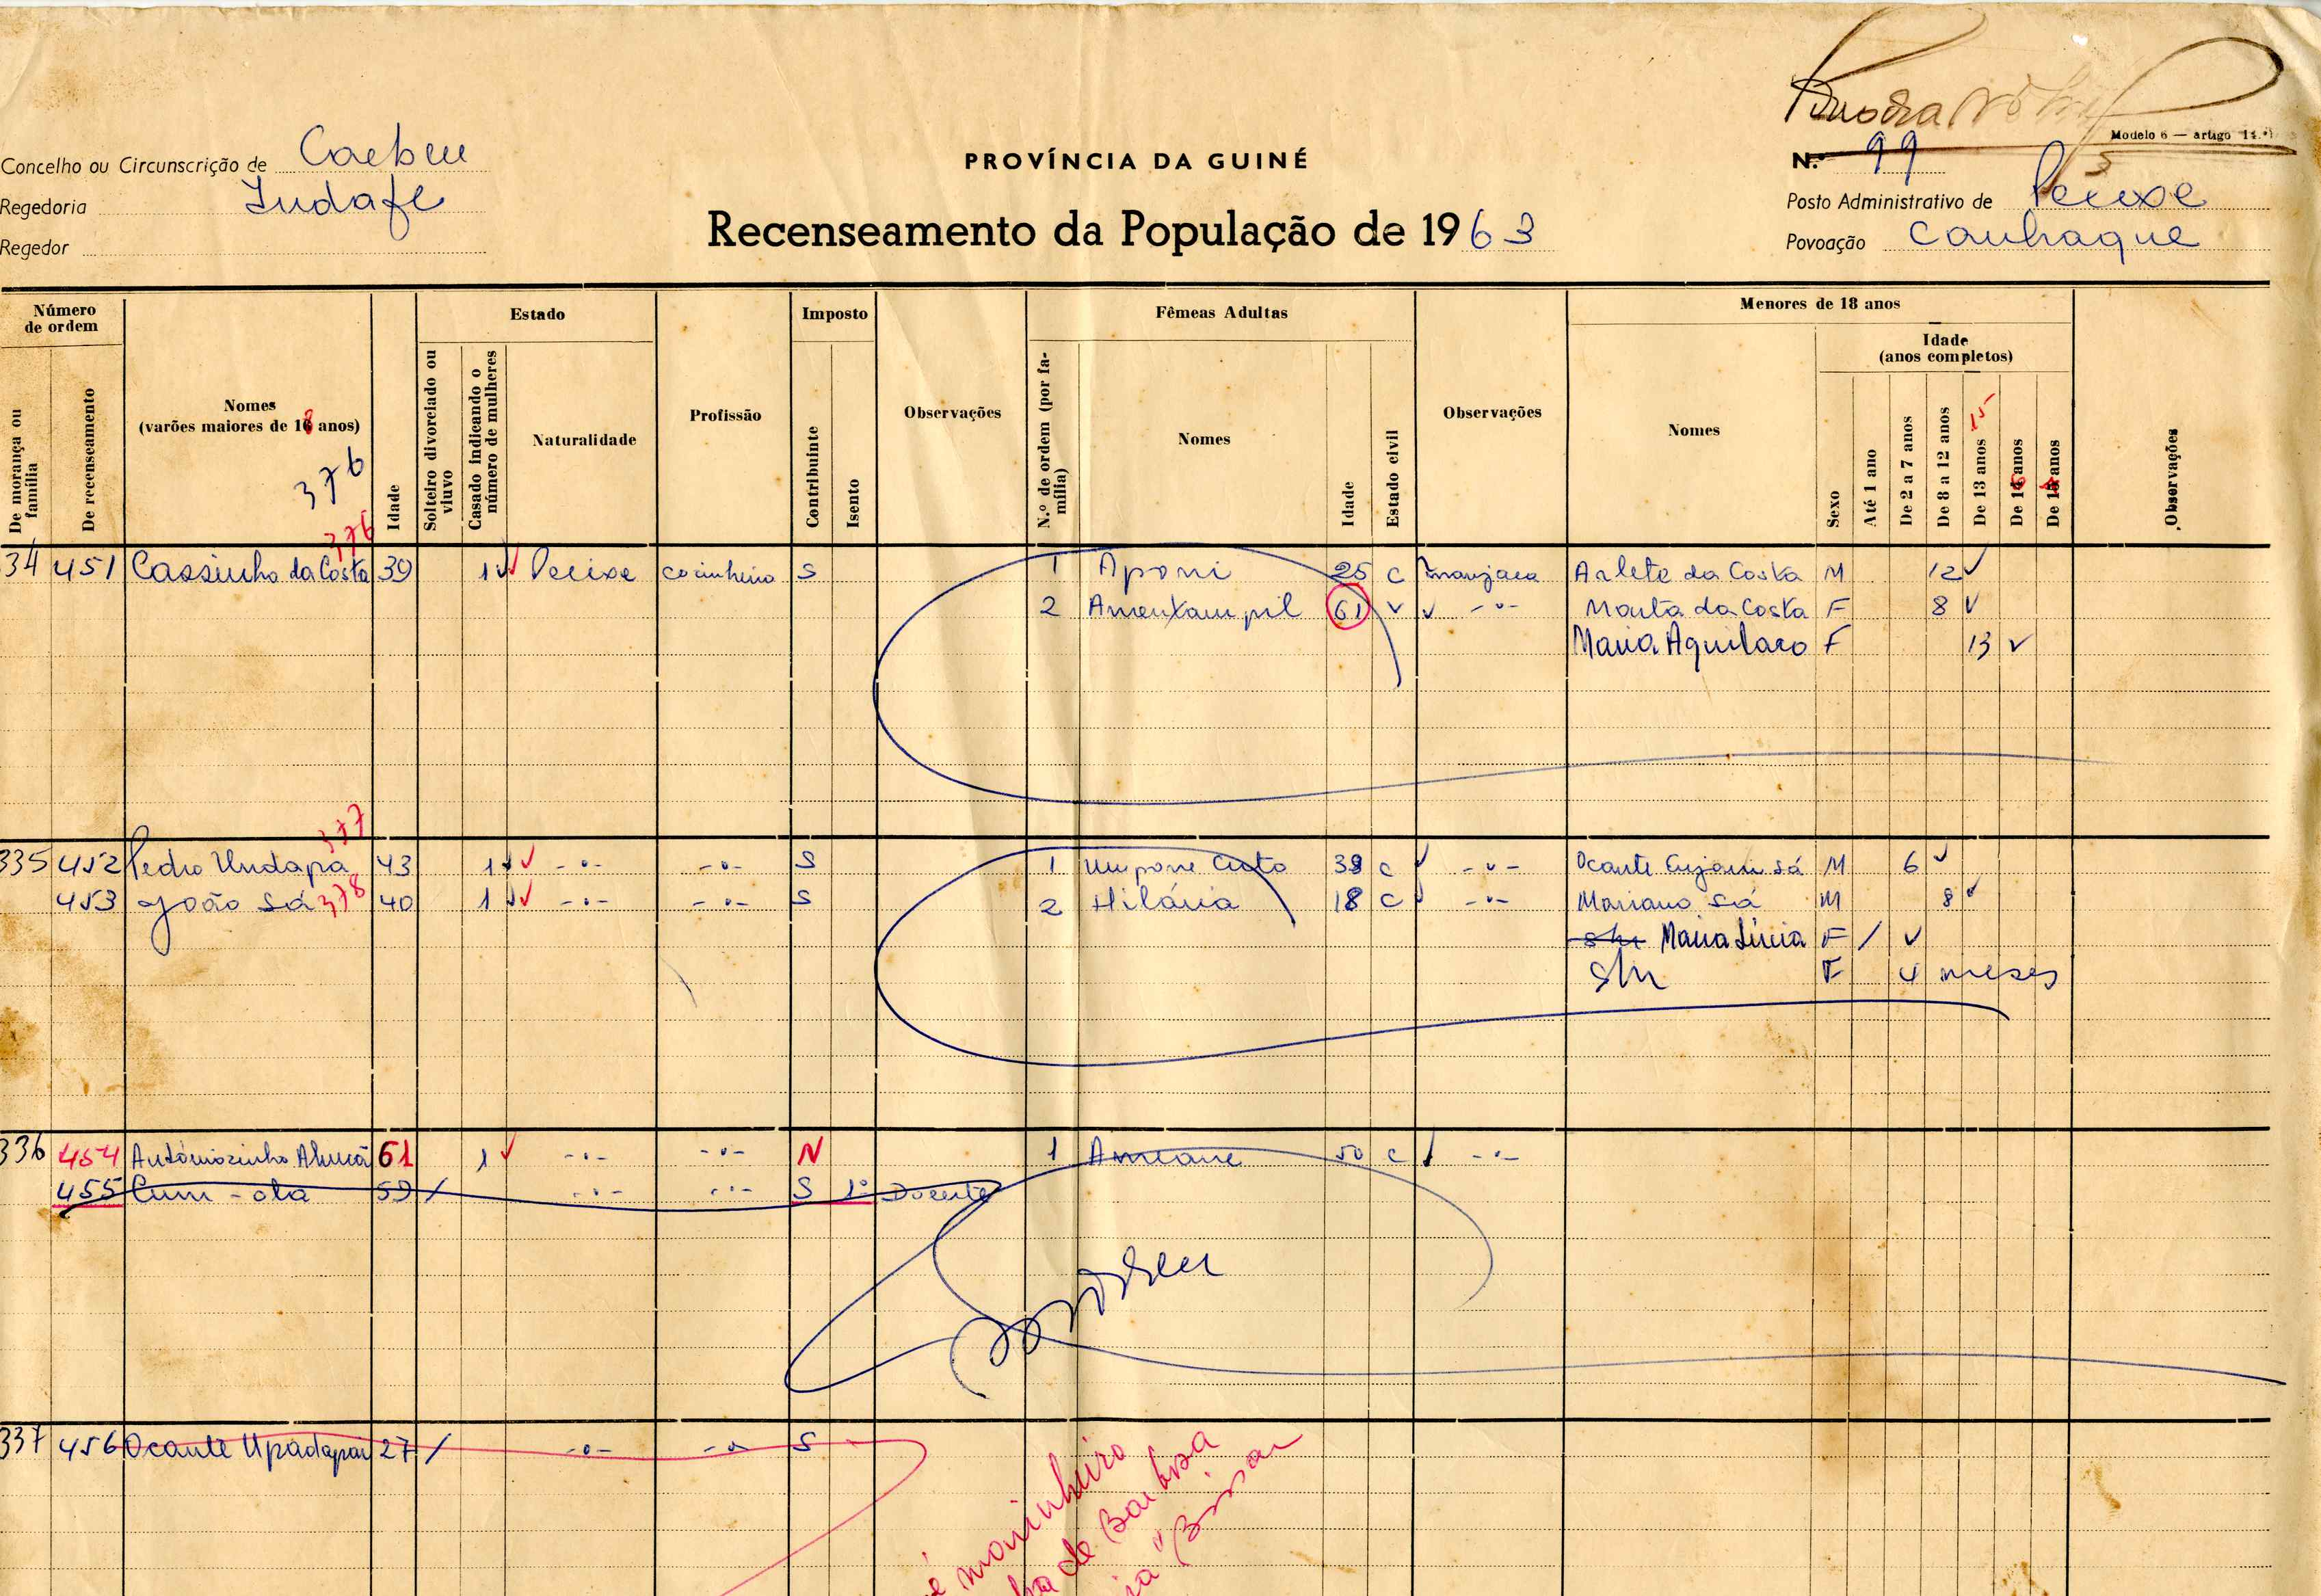 Modelo 6 — artigo 14.º
Concelho ou Circunscrição de
PROVÍNCIA DA GUINÉ
N.º 99
Regedoria
Posto Administrativo de Pecixe
Regedor
Recenseamento da População de 1963
Povoação
Número de ordem
Estado
Imposto
Fêmeas Adultas
Menores de 18 anos
Idade
(anos completos)
De morança ou família
De recenseamento
Nomes
(varões maiores de 18 anos)
376
376
Idade
Solteiro divorciado ou viuvo
Casado indicando o número de mulheres
Naturalidade
Profissão
Contribuinte
Isento
Observações
N.º de ordem (por família)
Nomes
Idade
Estado civil
Observações
Nomes
Sexo
Até 1 ano
De 2 a 7 anos
De 8 a 12 anos
De 13 anos 15
De anos
De anos
Observações
34 451 Cassinho da Costa 39 1 Pecixe cozinheiro S 1 Aponi 25 C Arlete da Costa M 12
2 61 V -"- Marta da Costa F 8
Maria F 13
377
335 452 Pedro Undapa 43 1 -"- -"- S 1 39 C -"- Ocante Sá M 6
453 João Sá 378 40 1 -"- -"- S 2 Hilária 18 C -"- Mariano Sá M 8
s/n Maria Lúcia F
s/n F 4 meses
336 454 61 1 -"- -"- N 1 Ameane 50 C -"-
455 59 -"- -"- S 1º Doente
337 456 Ocante 27 -"- -"- S
é marinheiro
de
Bissau